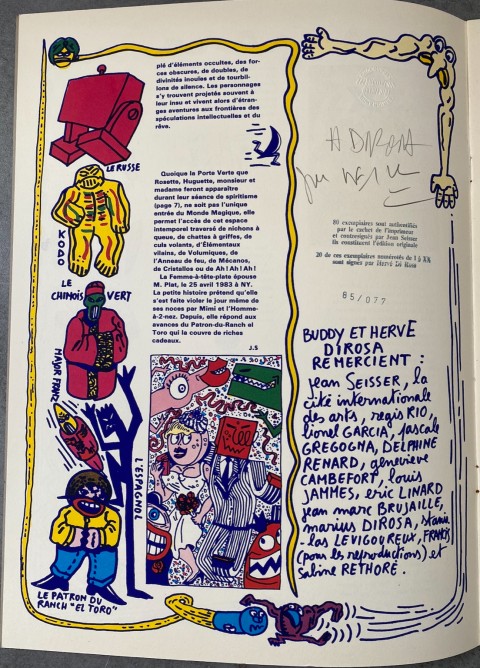 plé d'éléments occultes, des for-
ces obscures, de doubles, de
divinités inouïes et de tourbil-
lons de silence. Les personnages
s'y trouvent projetés souvent à
leur insu et vivent alors d'étran-
ges aventures aux frontières des
spéculations intellectuelles et du
rêve.
Quoique la Porte Verte que
Rosette, Huguette, monsieur et
madame feront apparaître
durant leur séance de spiritisme
(page 7), ne soit pas l'unique
entrée du Monde Magique, elle
permet l'accès de cet espace
intemporel traversé de nichons à
queue, de chattes à griffes, de
culs volants, d'Élémentaux
vilains, de Volumiques, de
l'Anneau de feu, de Mécanos,
de Cristallos ou de Ah ! Ah ! Ah !
La Femme-à-tête-plate épouse
M. Plat, le 25 avril 1983 à NY.
La petite histoire prétend qu'elle
s'est faite violer le jour même de
ses noces par Mimi et l'Homme-
à-2-nez. Depuis, elle répond aux
avances du Patron-du-Ranch el
Toro qui la couvre de riches
cadeaux.
J.S
LE RUSSE
KODO
LE
CHINOIS VERT
MAJOR FRANZ
L'ESPAGNOL
LE PATRON DU
RANCH "EL TORO"
H DIROSA
80 exemplaires sont authentifiés
par le cachet de l'imprimeur
et contresignés par Jean Seisser
Ils constituent l'édition originale
20 de ces exemplaires numérotés de I à XX
sont signés par Hervé Di Rosa
85/077
BUDDY ET HERVÉ
DIROSA
REMERCIENT :
Jean SEISSER, la
cité internationale
des arts, regis RIO,
lionel GARCIA, pascale
GREGOGNA, DELPHINE
RENARD, geneviève
CAMBEFORT, louis
JAMMES, eric LINARD
jean marc BRUJAILLE,
marius DIROSA, stanis
-las LEVIGOUREUX, FRANCIS
(pour les reproductions) et
Sabine RETHORÉ.